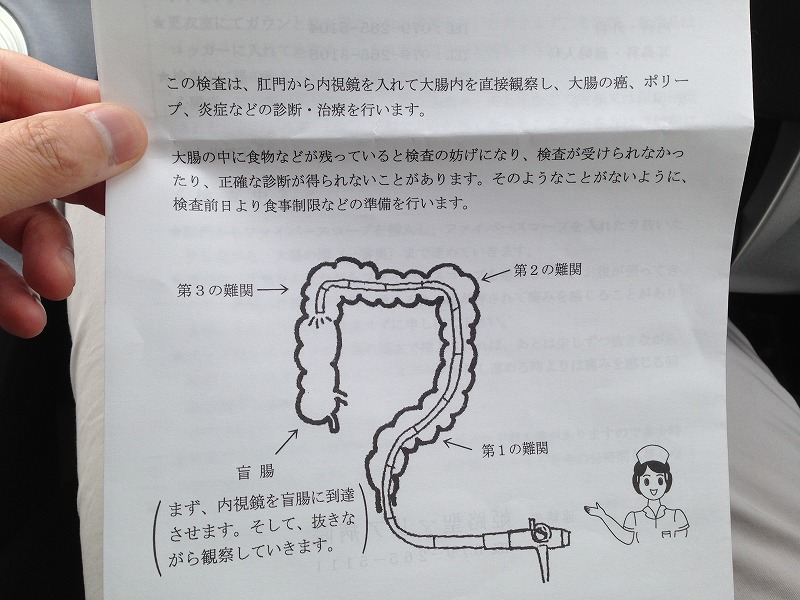 この検査は、肛門から内視鏡を入れて大腸内を直接観察し、大腸の癌、ポリー
プ、炎症などの診断・治療を行います。
大腸の中に食物などが残っていると検査の妨げになり、検査が受けられなかっ
たり、正確な診断が得られないことがあります。そのようなことがないように、
検査前日より食事制限などの準備を行います。
第２の難関
第３の難関
第１の難関
盲 腸
まず、内視鏡を盲腸に到達
させます。そして、抜きな
がら観察していきます。